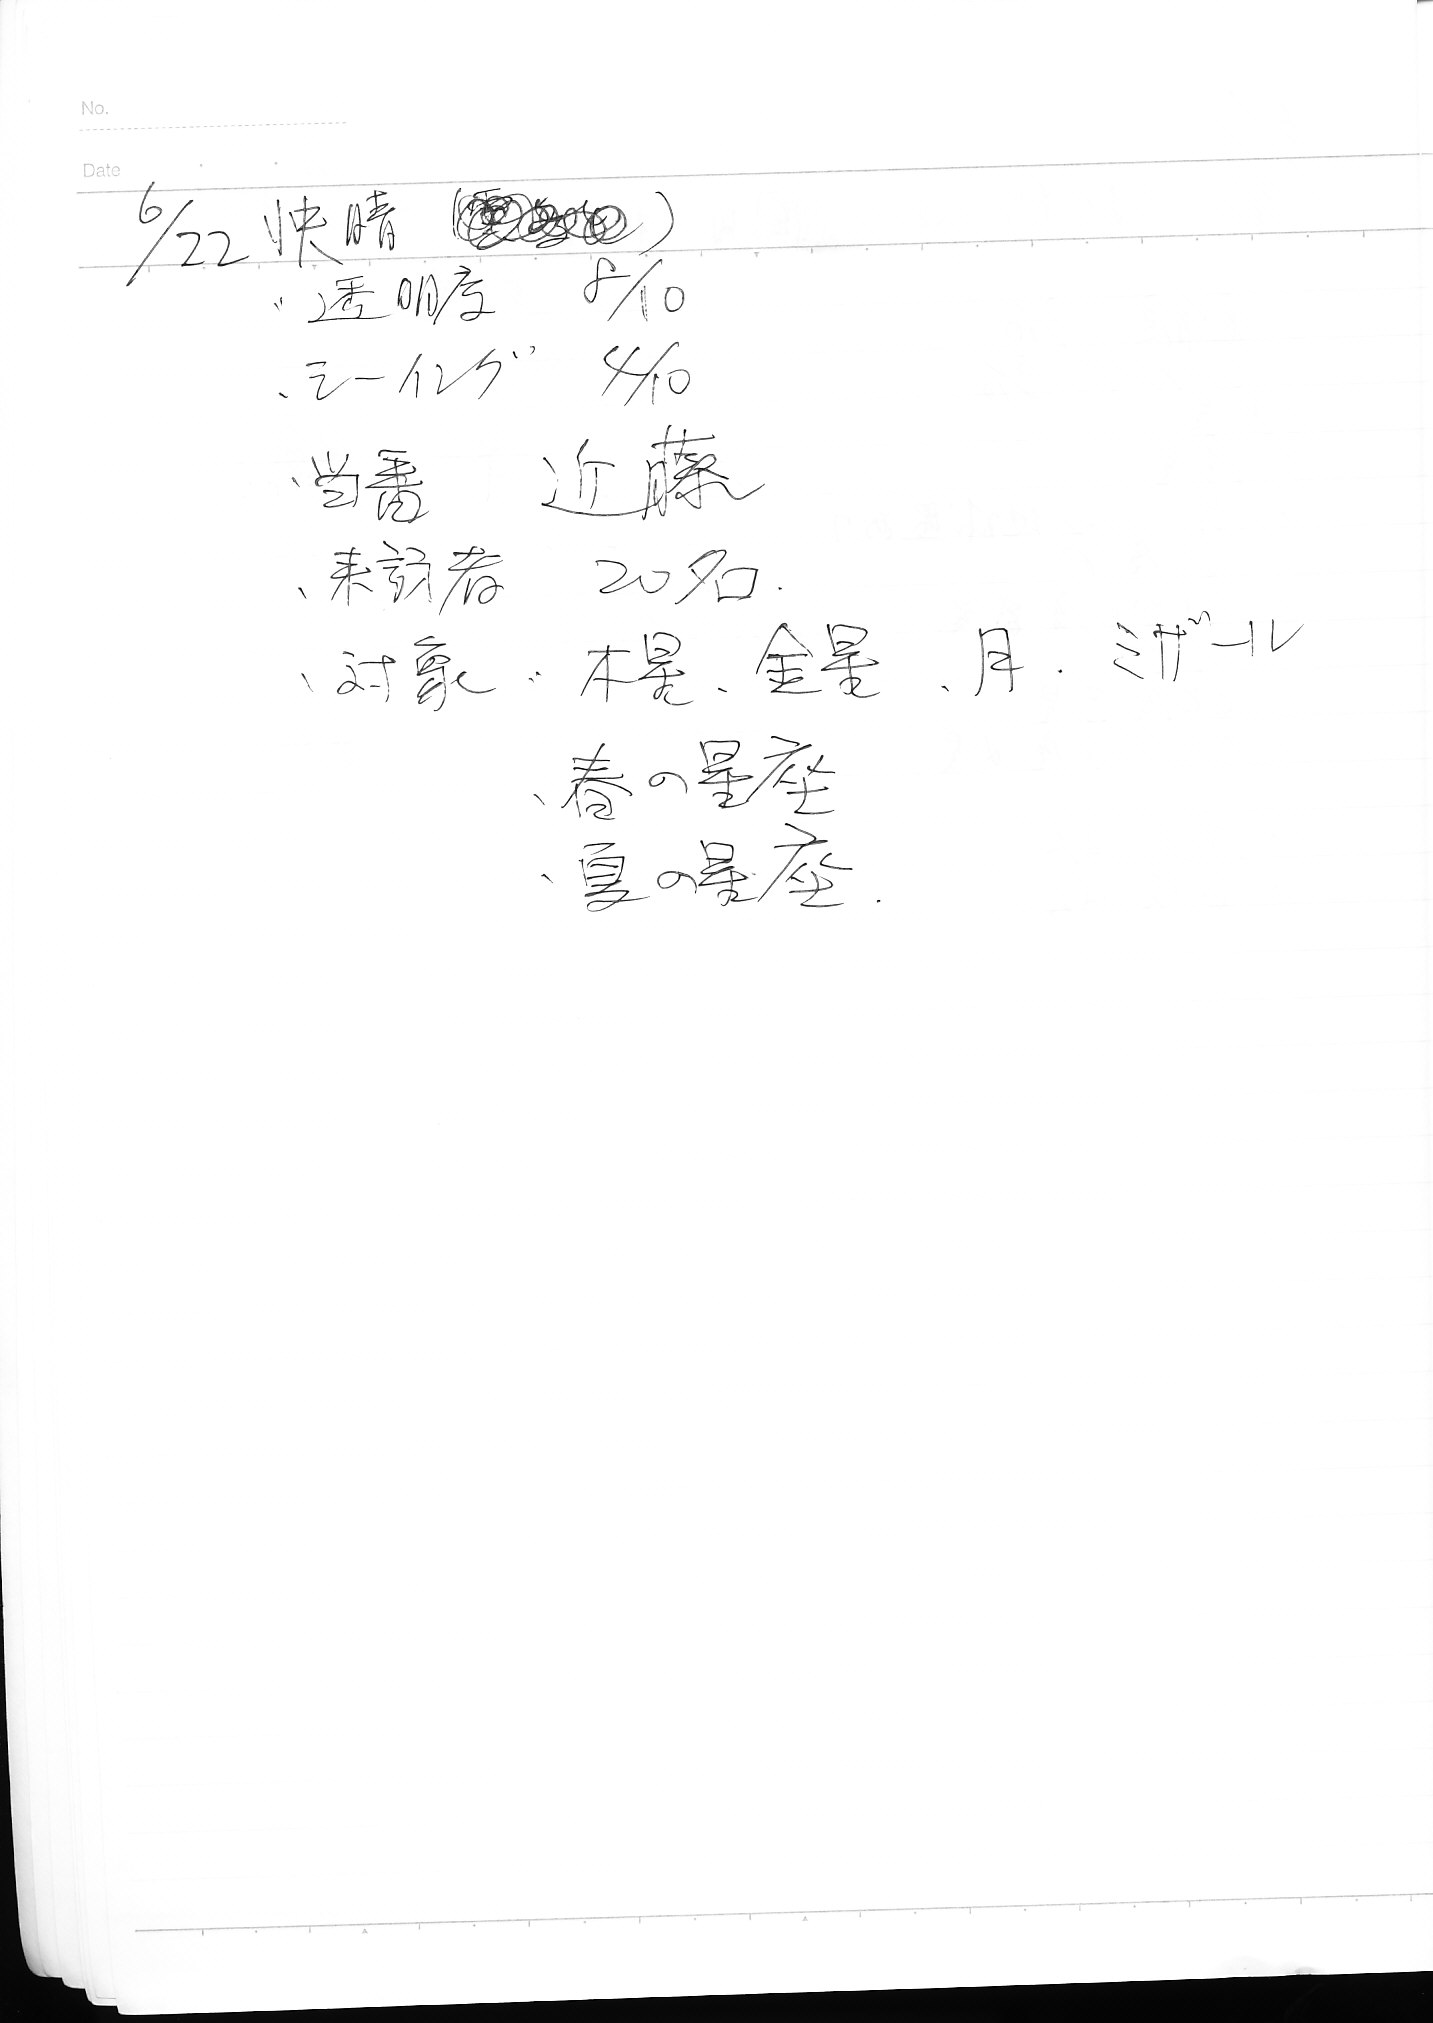 No.
Date
6/22 快晴 ( )
・透明度 8/10
・シーイング 4/10
・当番 近藤
・来訪者 20名.
・対象・木星、金星、月.ミザール
・春の星座
・夏の星座.